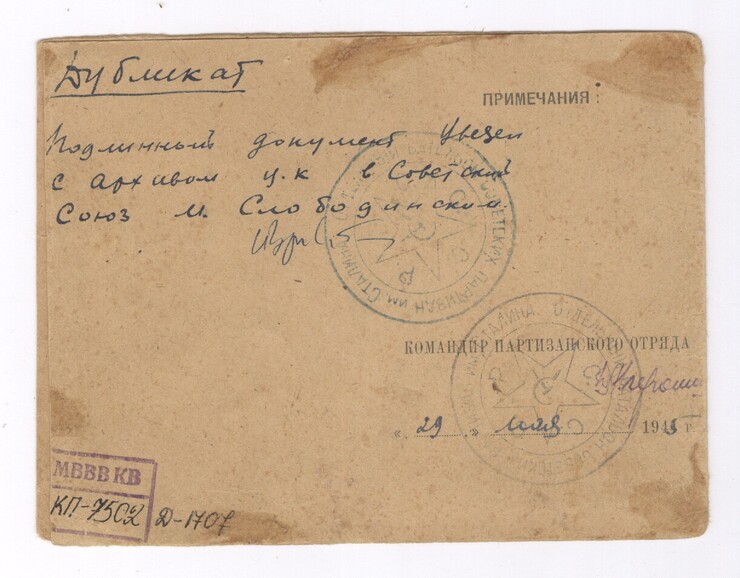 Дубликат
ПРИМЕЧАНИЯ:
Подлинный документ увезен
с архивом ц.к в Советский
Союз м. Слободинским.
КОМАНДИР ПАРТИЗАНСКОГО ОТРЯДА
„29“ мая 1945 г.
МВВВ КВ
КП-7502 Д-1707